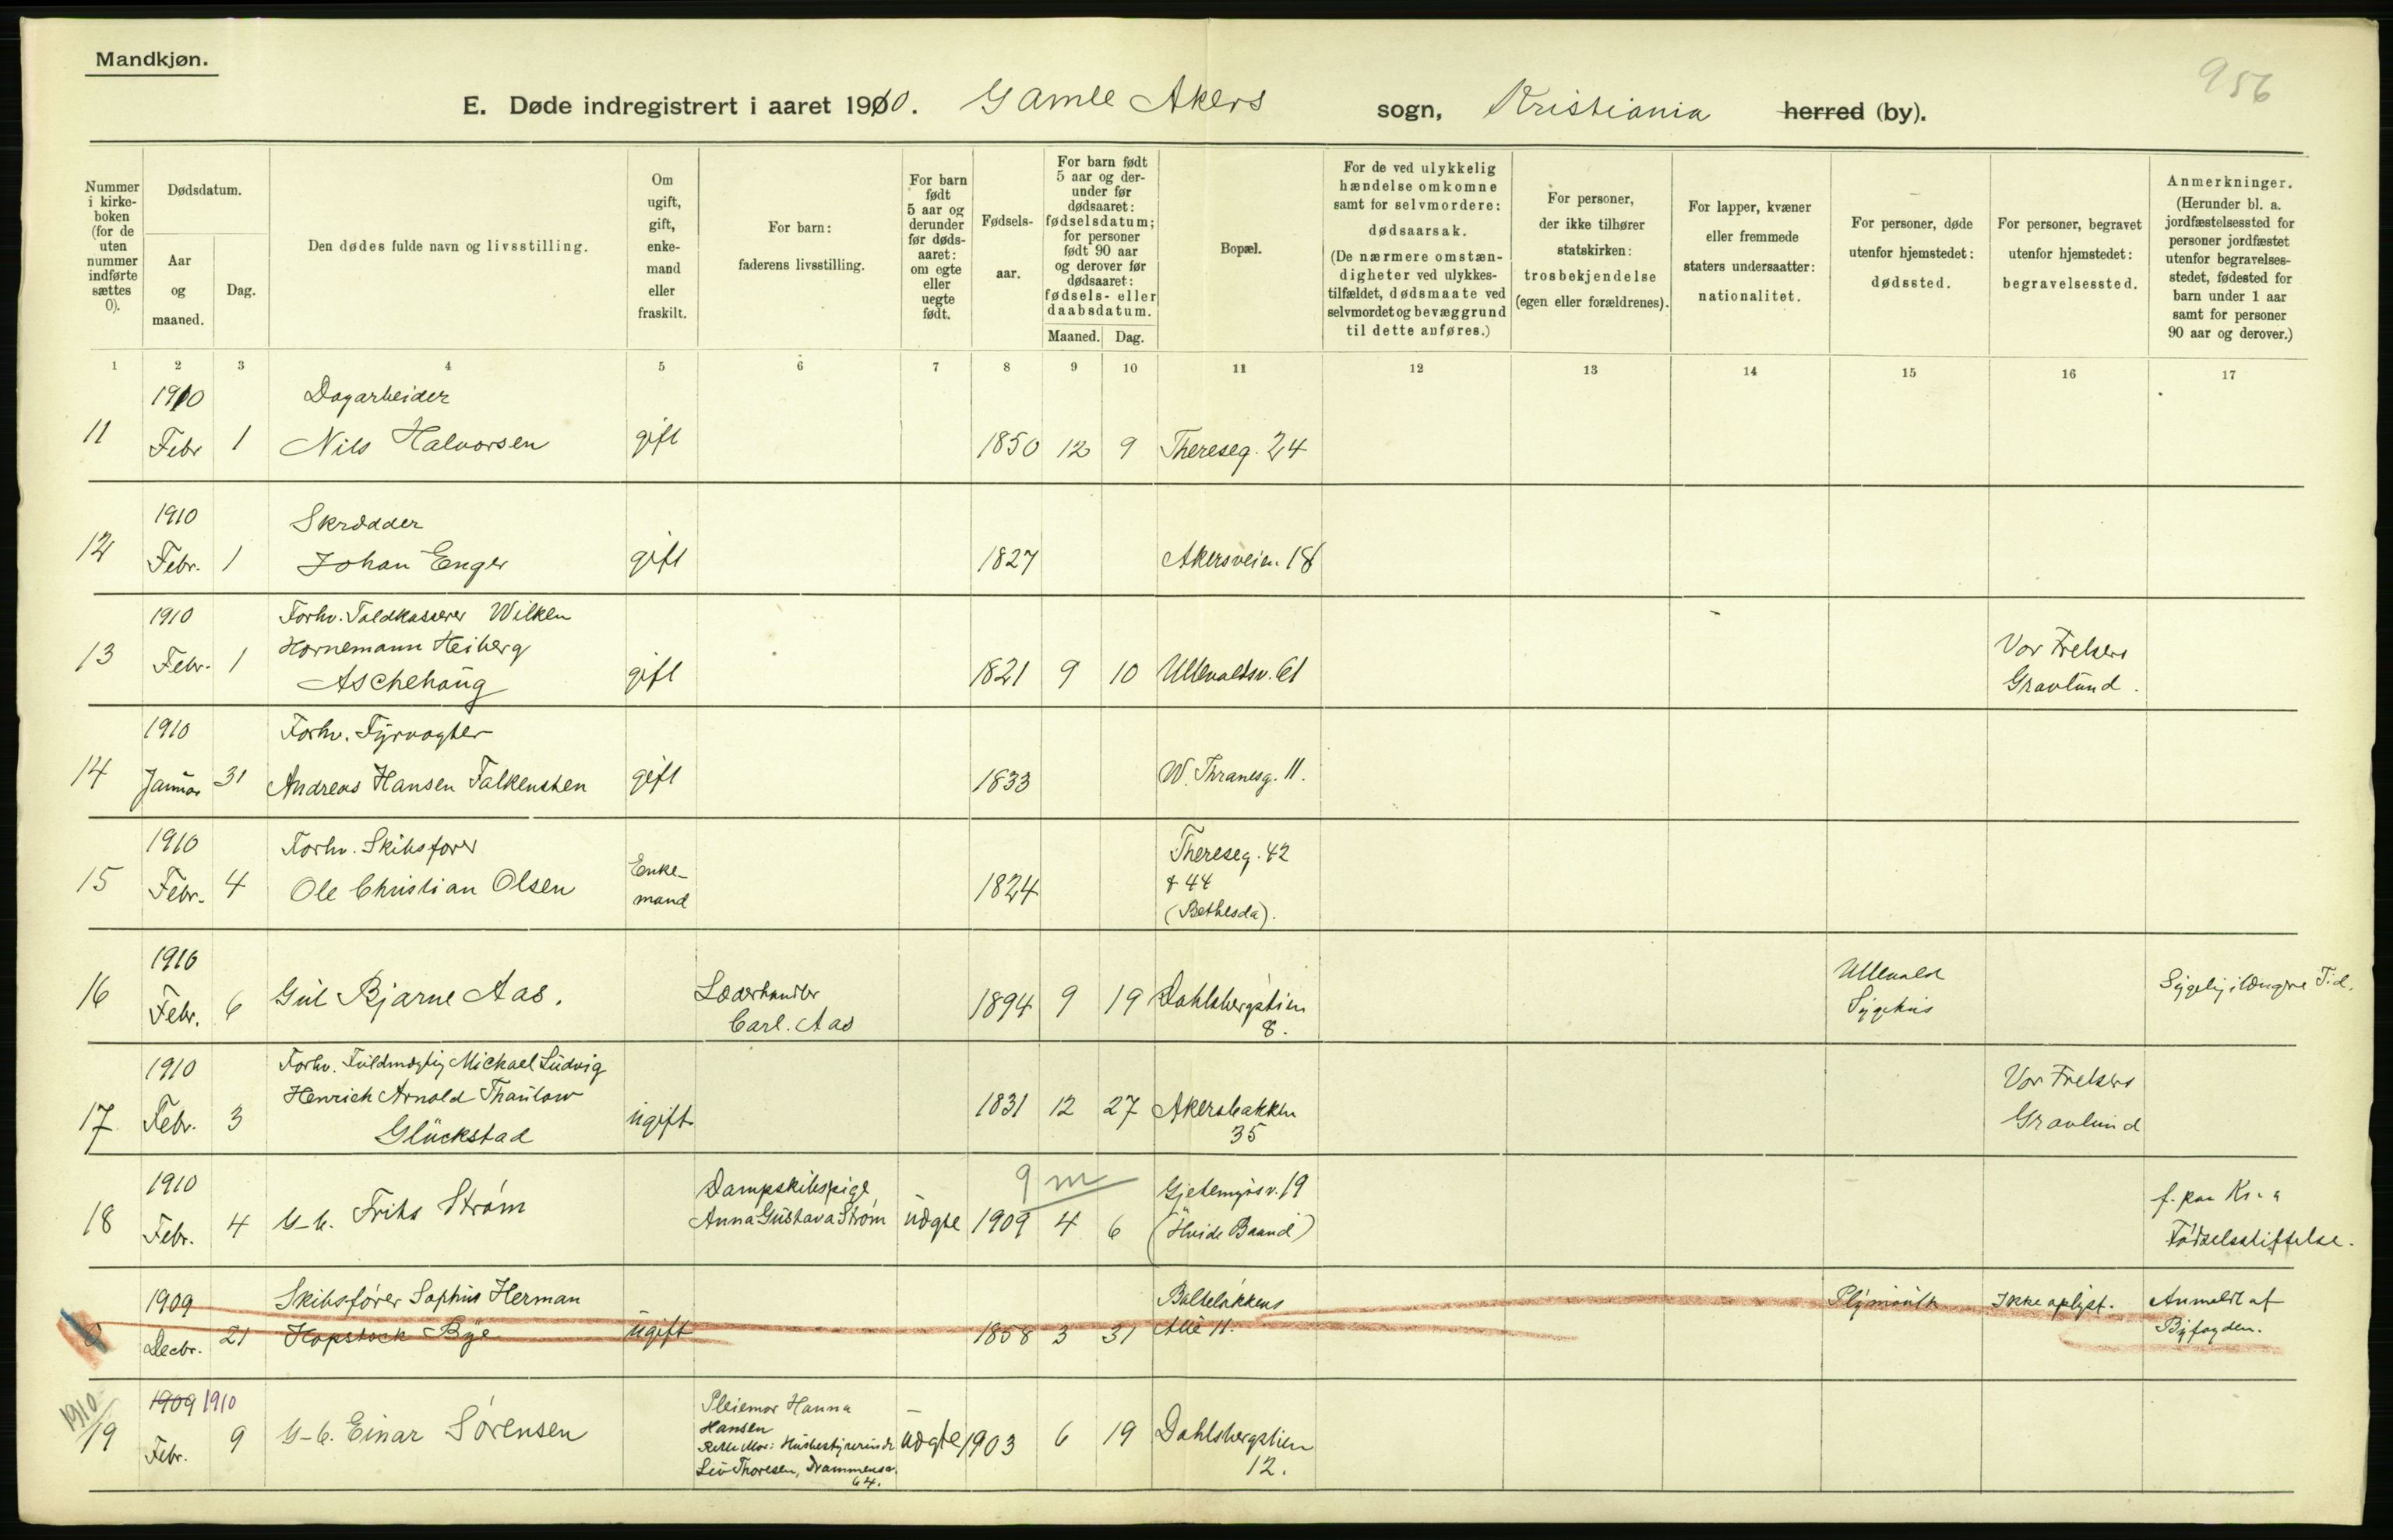 Mandkjøn.
956
E. Døde indregistrert i aaret 1910. Gamle Akers sogn, Kristiania herred (by).
Nummer i kirke-boken (for de uten nummer indførte sættes 0).
Dødsdatum.
Aar og maaned.
Dag.
Den dødes fulde navn og livsstilling.
Om ugift, gift, enke-mand eller fraskilt.
For barn: faderens livsstilling.
For barn født 5 aar og derunder før døds-aaret: om egte eller uegte født.
Fødsels-aar.
For barn født 5 aar og der-under før dødsaaret: fødselsdatum; for personer født 90 aar og derover før dødsaaret: fødsels- eller daabsdatum.
Maaned. Dag.
Bopæl.
For de ved ulykkelig hændelse omkomne samt for selvmordere: dødsaarsak. (De nærmere omstæn-digheter ved ulykkes-tilfældet, dødsmaate ved selvmordet og bevæggrund til dette anføres.)
For personer, der ikke tilhører statskirken: trosbekjendelse (egen eller forældrenes).
For lapper, kvæner eller fremmede staters undersaatter: nationalitet.
For personer, døde utenfor hjemstedet: dødssted.
For personer, begravet utenfor hjemstedet: begravelsessted.
Anmerkninger. (Herunder bl. a. jordfæstelsessted for personer jordfæstet utenfor begravelses-stedet, fødested for barn under 1 aar samt for personer 90 aar og derover.)
1 2 3 4 5 6 7 8 9 10 11 12 13 14 15 16 17
1910 Dagarbeider
11 Febr 1 Nils Halvorsen gift 1850 12 9 Thereseg. 24
1910 Skrædder
12 Febr. 1 Johan Enger gift 1827 Akersveien 18
1910 Forhv. Toldkasserer Wilken
13 Febr. 1 Hornemann Heiberg Vor Frelsers
Aschehoug gift 1821 9 10 Ullevaldsv. 61 Gravlund.
1910 Forhv. Fyrvogter
14 Januar 31 Andreas Hansen Falkensten gift 1833 W. Thranesg. 11.
1910 Forhv. Skibsfører Thereseg. 42
15 Febr. 4 Ole Christian Olsen Enke-mand 1824 & 44
(Bethesda).
1910 Ullevald
16 Febr. 6 Gut Bjarne Aas. Læderhandler 1894 9 19 Dahlsbergstien Sygehus
Carl. Aas 8.
1910 Forhv. Fuldmægtig Mickael Ludvig Vor Frelsers
17 Febr. 3 Henrich Arnold Thaulow 1831 12 27 Akersbakken Gravlund
Glückstad ugift 35
1910 Dampskibspige 9 m Gjetemyrsv. 19 f. paa Kr.a
18 Febr. 4 G-b. Frits Strøm Anna Gustava Strøm uægte 1909 4 6 (Hvide Baand) Fødselsstiftelse.
1909 Skibsfører Sophus Herman Boltelökkens Plymouth Ikke oplyst. Anmeldt af
0 Decbr. 21 Hopstock Bye ugift 1858 3 31 Alle 11. Byfogden.
1910
1909 1910 Pleiemor Hanna
Hansen
19 Febr. 9 G-b. Einar Sørensen Rette Mor: Husbestyrerinde uægte 1903 6 19 Dahlsbergstien
Liv Thoresen, Drammensv. 12.
64.